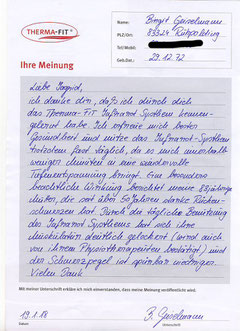 THERMA-FIT®
Ihre Meinung
Name: Birgit Geiselmann
PLZ/Ort: 83324 Ruhpolding
Tel/Mobil:
Geb.Dat.: 29.12.72
Liebe Ingrid,
ich danke dir, daß ich durch dich
das Therma-FIT Infrarot System kennen-
gelernt habe. Ich erfreue mich bester
Gesundheit und nütze das Infrarot-System
trotzdem fast täglich, da es mich innerhalb
weniger Minuten in eine wundervolle
Tiefenentspannung bringt. Eine besonders
beachtliche Wirkung berichtet meine 83jährige
Mutter, die seit über 50 Jahren starke Rücken-
schmerzen hat. Durch die tägliche Benützung
des Infrarot Systems hat sich ihre
Muskulatur deutlich gelockert (wird auch
von ihrem Physiotherapeuten bestätigt) und
der Schmerzpegel ist spürbar niedriger.
Vielen Dank
Mit meiner Unterschrift erkläre ich mich einverstanden, dass meine Meinung veröffentlicht wird.
19.1.18
B. Geiselmann
Datum
Unterschrift